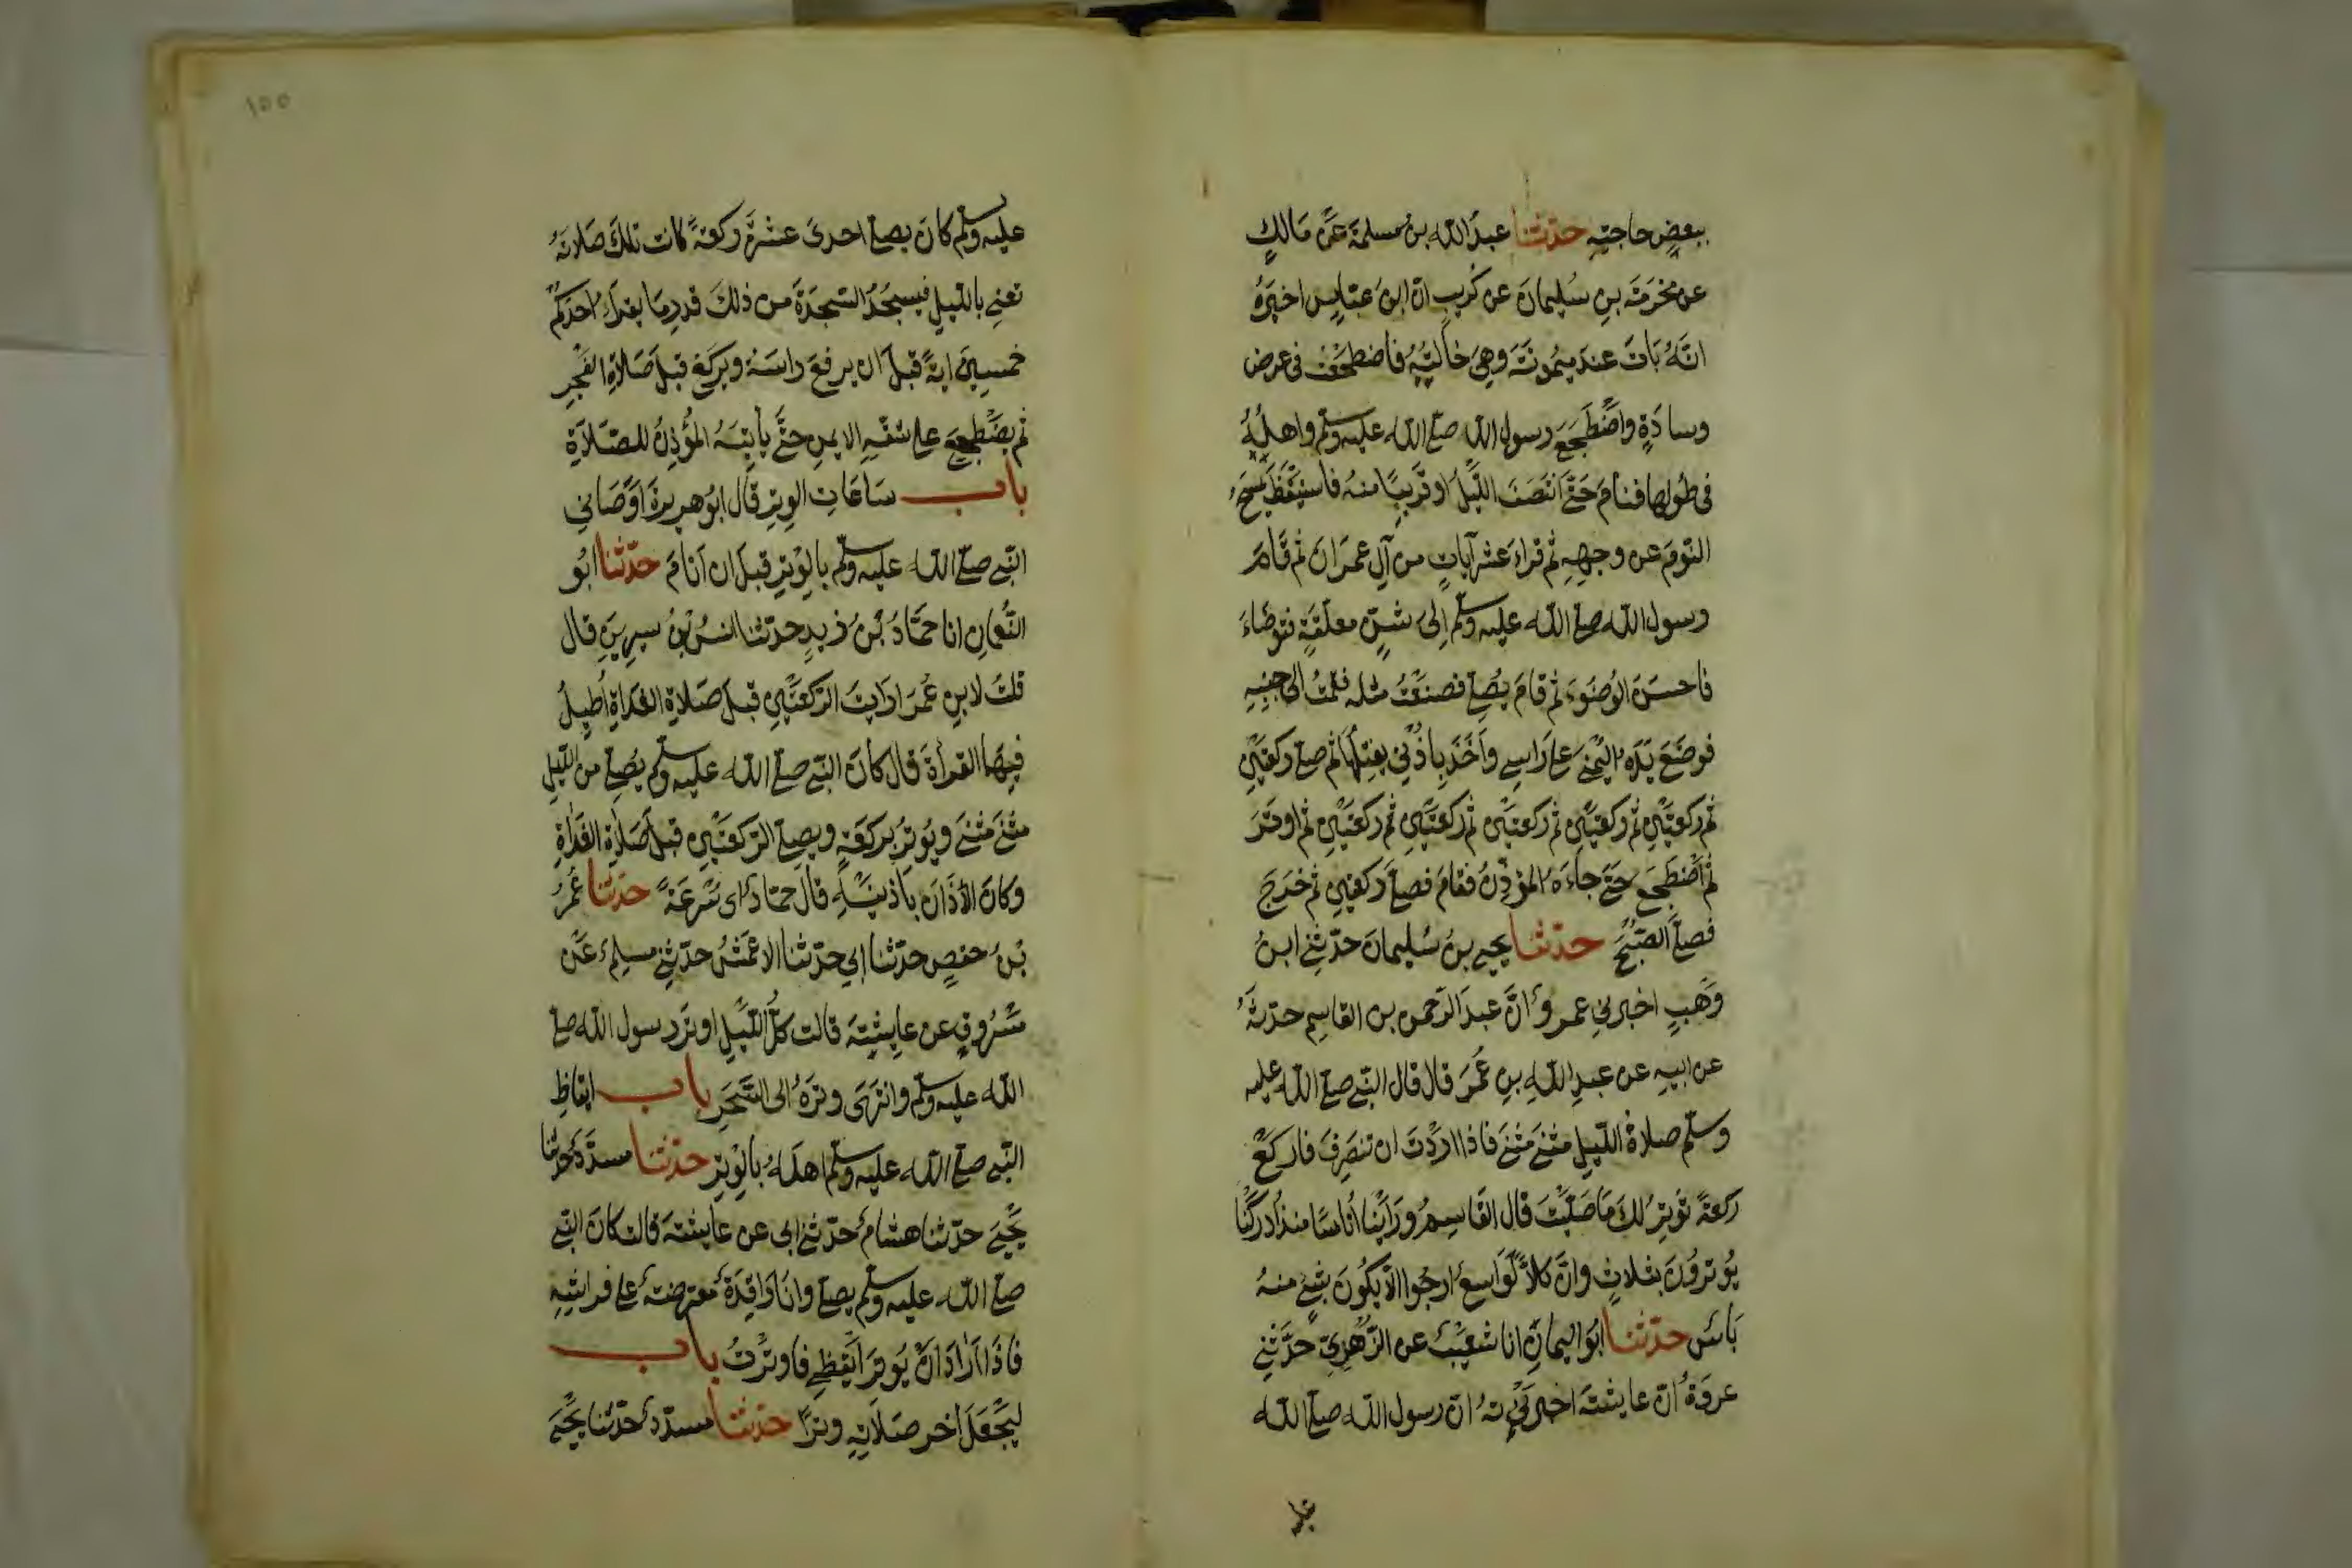 ببعض حاجته حدثنا عبد الله بن مسلمة عن مالك
عن مخرمة بن سليمان عن كريب ان ابن عباس اخبره
انه بات عند ميمونة وهي خالته فاضطجعت في عرض
وسادة واضطجع رسول الله صلى الله عليه وسلم واهله
في طولها فنام حتى انتصف الليل او قريبا منه فاستيقظ يمسح
النوم عن وجهه ثم قراء عشر آيات من آل عمران ثم قام
رسول الله صلى الله عليه وسلم الى شن معلقة فتوضاء
فاحسن الوضوء ثم قام يصلي فصنعت مثله فقمت الى جنبه
فوضع يده اليمنى على راسي واخذ باذني يفتلها ثم صلى ركعتين
ثم ركعتين ثم ركعتين ثم ركعتين ثم ركعتين ثم ركعتين ثم اوتر
ثم اضطجع حتى جاءه المؤذن فقام فصلى ركعتين ثم خرج
فصلى الصبح حدثنا يحيى بن سليمان حدثني ابن
وهب اخبرني عمرو ان عبد الرحمن بن القاسم حدثه
عن ابيه عن عبد الله بن عمر قال قال النبي صلى الله عليه
وسلم صلاة الليل مثنى مثنى فاذا اردت ان تنصرف فاركع
ركعة توتر لك ما صليت قال القاسم وراينا اناسا منذ ادركنا
يوترون بثلاث وان كلا لواسع ارجوا الا يكون بشئ منه
باس حدثنا ابو اليمان انا شعيب عن الزهري حدثني
عروة ان عايشة اخبرته ان رسول الله صلى الله
١٥٥
عليه وسلم كان يصلي احدى عشرة ركعة كانت تلك صلاته
تعني بالليل فيسجد السجدة من ذلك قدر ما يقراء احدكم
خمسين اية قبل ان يرفع راسه ويركع قبل صلاة الفجر
ثم يضطجع على شقه الايمن حتى يأتيه المؤذن للصلاة
باب ساعات الوتر قال ابو هريرة اوصاني
النبي صلى الله عليه وسلم بالوتر قبل ان انام حدثنا ابو
النعمان انا حماد بن زيد حدثنا انس بن سيرين قال
قلت لابن عمر ارايت الركعتين قبل صلاة الغداة اطيل
فيهما القراة قال كان النبي صلى الله عليه وسلم يصلي من الليل
مثنى مثنى ويوتر بركعة ويصلي الركعتين قبل صلاة الغداة
وكان الأذان باذنيه قال حماد اى سرعة حدثنا عمر
بن حفص حدثنا ابي حدثنا الاعمش حدثني مسلم عن
مسروق عن عايشة قالت كل الليل اوتر رسول الله صلى
الله عليه وسلم وانتهى وتره الى السحر باب ايقاظ
النبي صلى الله عليه وسلم اهله بالوتر حدثنا مسدد حدثنا
يحيى حدثنا هشام حدثني ابي عن عايشة قالت كان النبي
صلى الله عليه وسلم يصلي وانا راقدة معترضة على فراشه
فاذا اراد ان يوتر ايقظني فاوترت باب
ليجعل اخر صلاته وترا حدثنا مسدد حدثنا يحيى